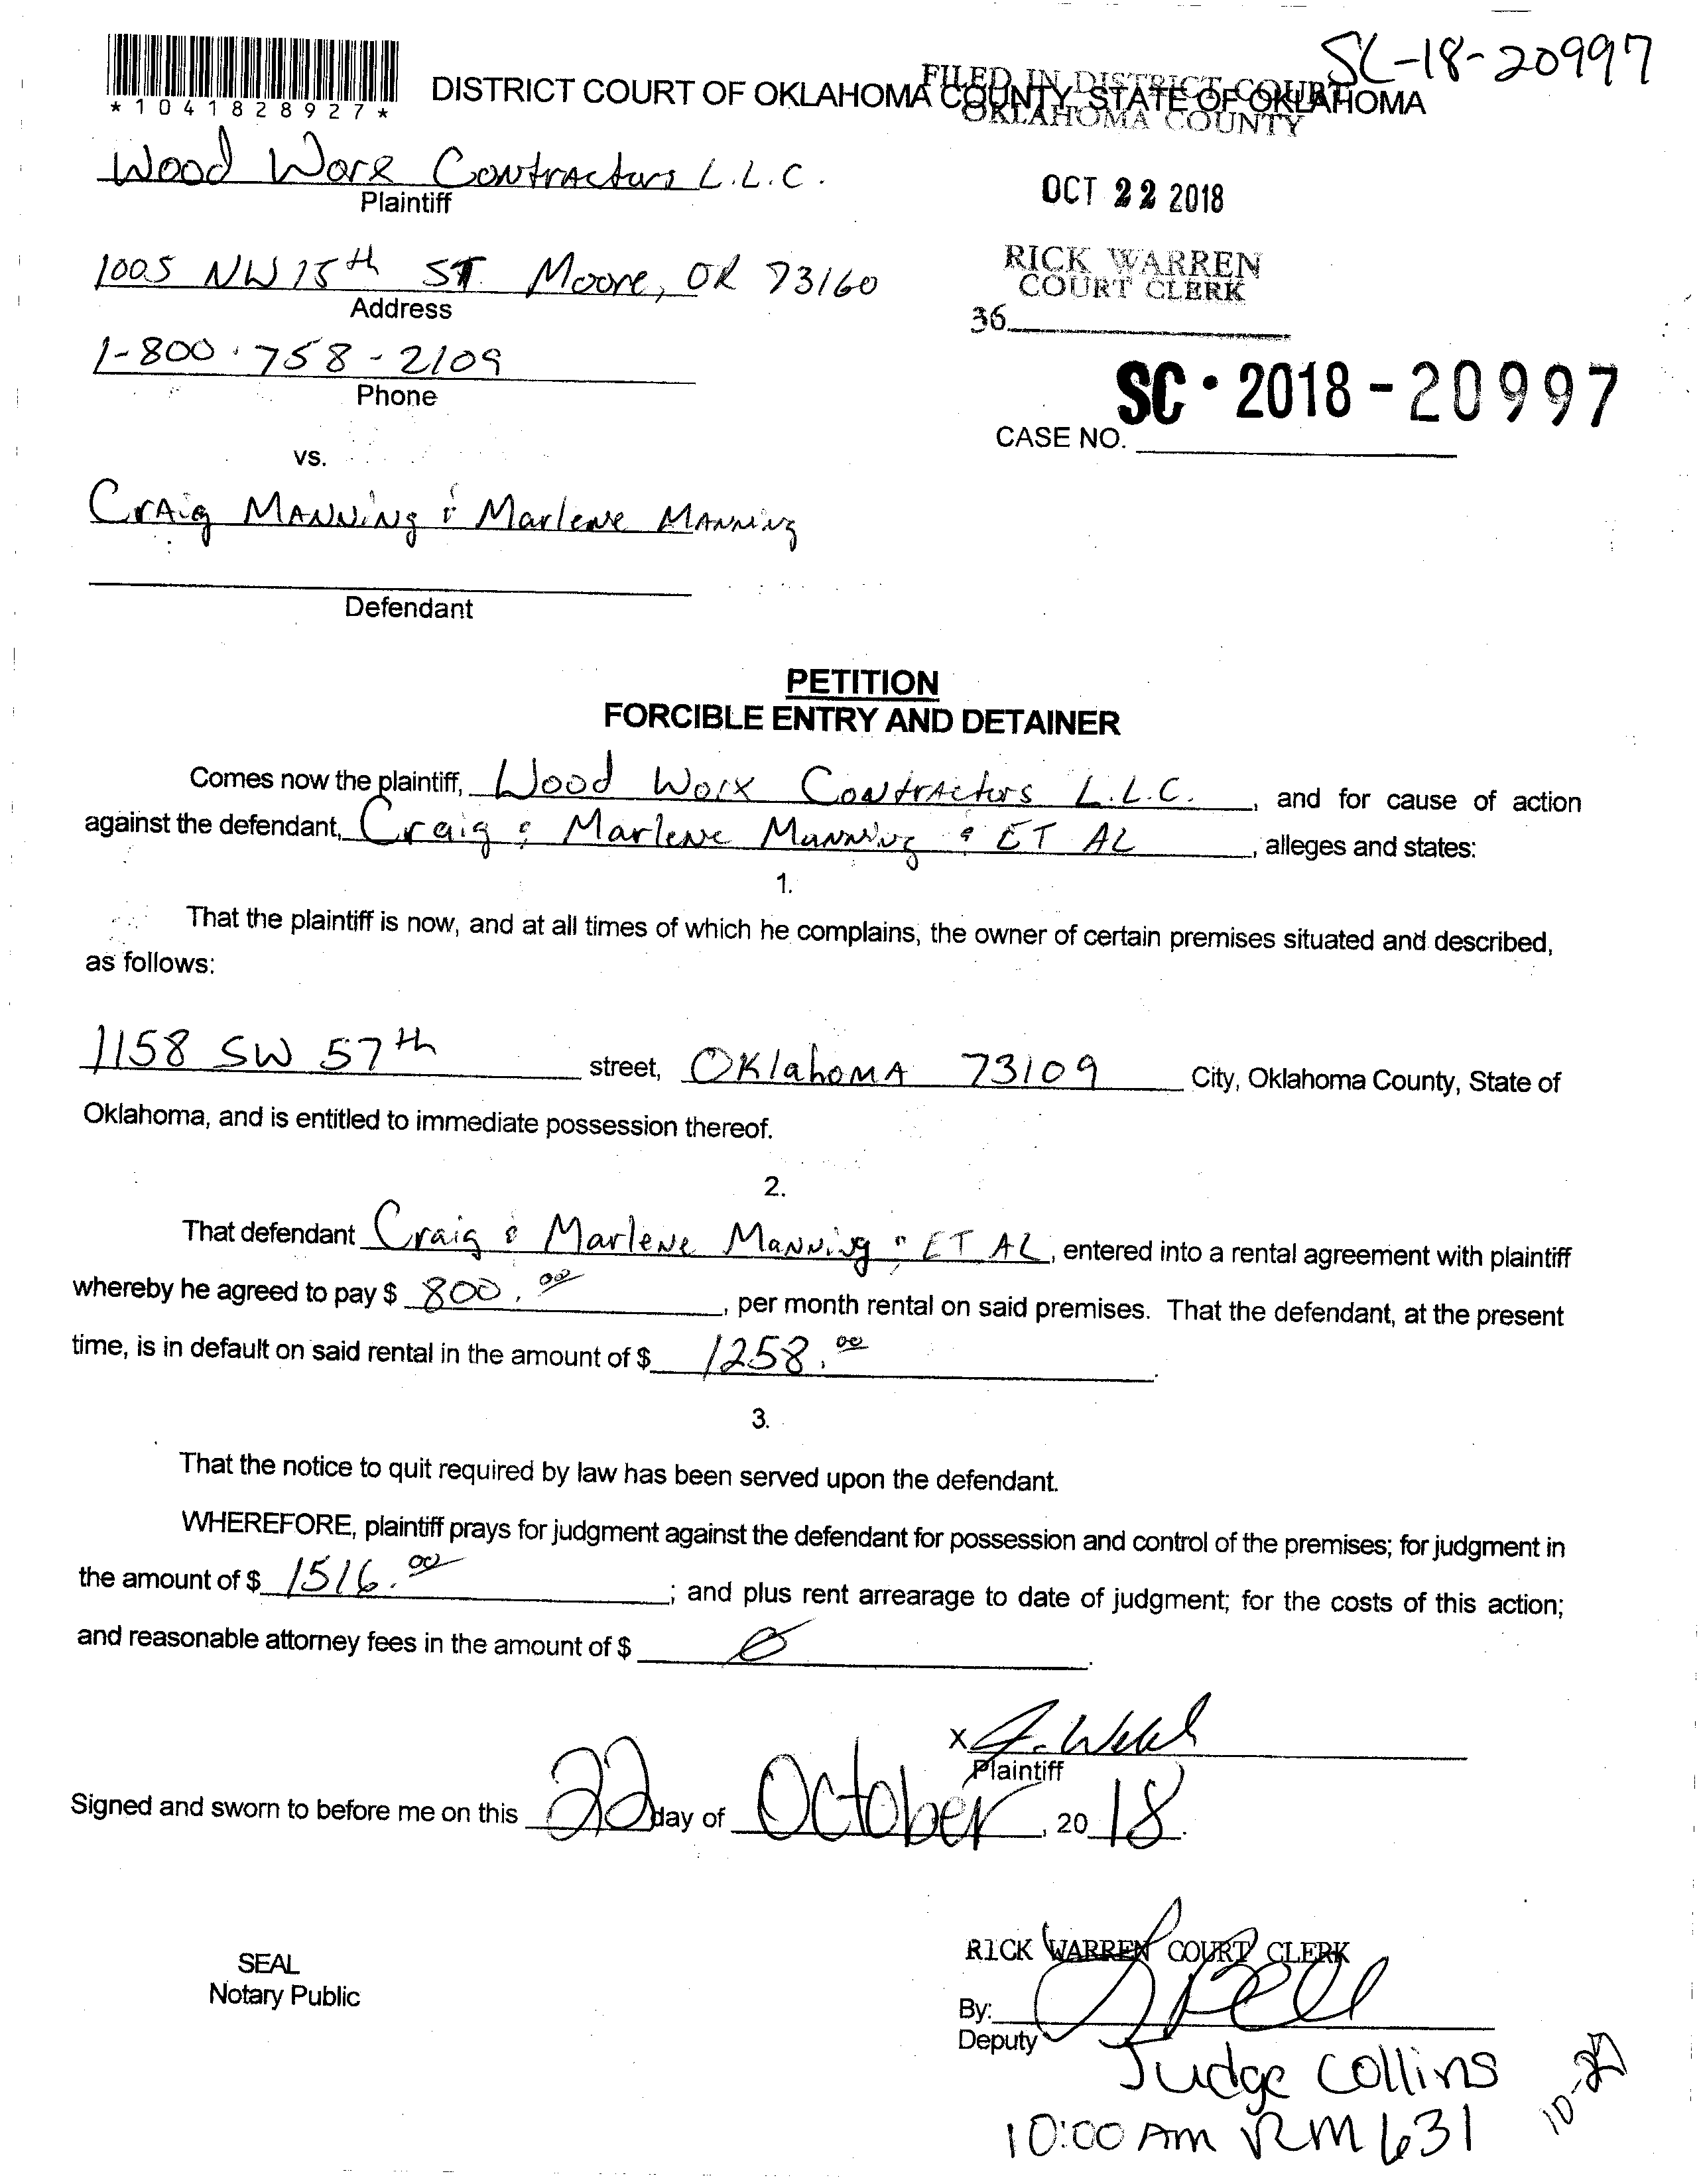 SC-18-20997
*1041828927*
DISTRICT COURT OF OKLAHOMA COUNTY, STATE OF OKLAHOMA
FILED IN DISTRICT COURT
OKLAHOMA COUNTY
Wood Worx Contractors L.L.C.
Plaintiff
OCT 22 2018
1005 NW 15th ST. Moore, OK 73160
Address
RICK WARREN
COURT CLERK
36
1-800-758-2109
Phone
SC-2018-20997
CASE NO.
vs.
Craig Manning & Marlene Manning
Defendant
PETITION
FORCIBLE ENTRY AND DETAINER
Comes now the plaintiff, Wood Worx Contractors L.L.C., and for cause of action
against the defendant, Craig & Marlene Manning & ET AL, alleges and states:
1.
That the plaintiff is now, and at all times of which he complains, the owner of certain premises situated and described,
as follows:
1158 SW 57th street, Oklahoma 73109 City, Oklahoma County, State of
Oklahoma, and is entitled to immediate possession thereof.
2.
That defendant Craig & Marlene Manning & ET AL, entered into a rental agreement with plaintiff
whereby he agreed to pay $ 800.00, per month rental on said premises. That the defendant, at the present
time, is in default on said rental in the amount of $ 1258.00.
3.
That the notice to quit required by law has been served upon the defendant.
WHEREFORE, plaintiff prays for judgment against the defendant for possession and control of the premises; for judgment in
the amount of $ 1516.00; and plus rent arrearage to date of judgment; for the costs of this action;
and reasonable attorney fees in the amount of $ 0.
X
Plaintiff
Signed and sworn to before me on this 22 day of October, 2018.
SEAL
Notary Public
RICK WARREN COURT CLERK
By: Bell
Deputy
Judge Collins
10:00 Am RM 631